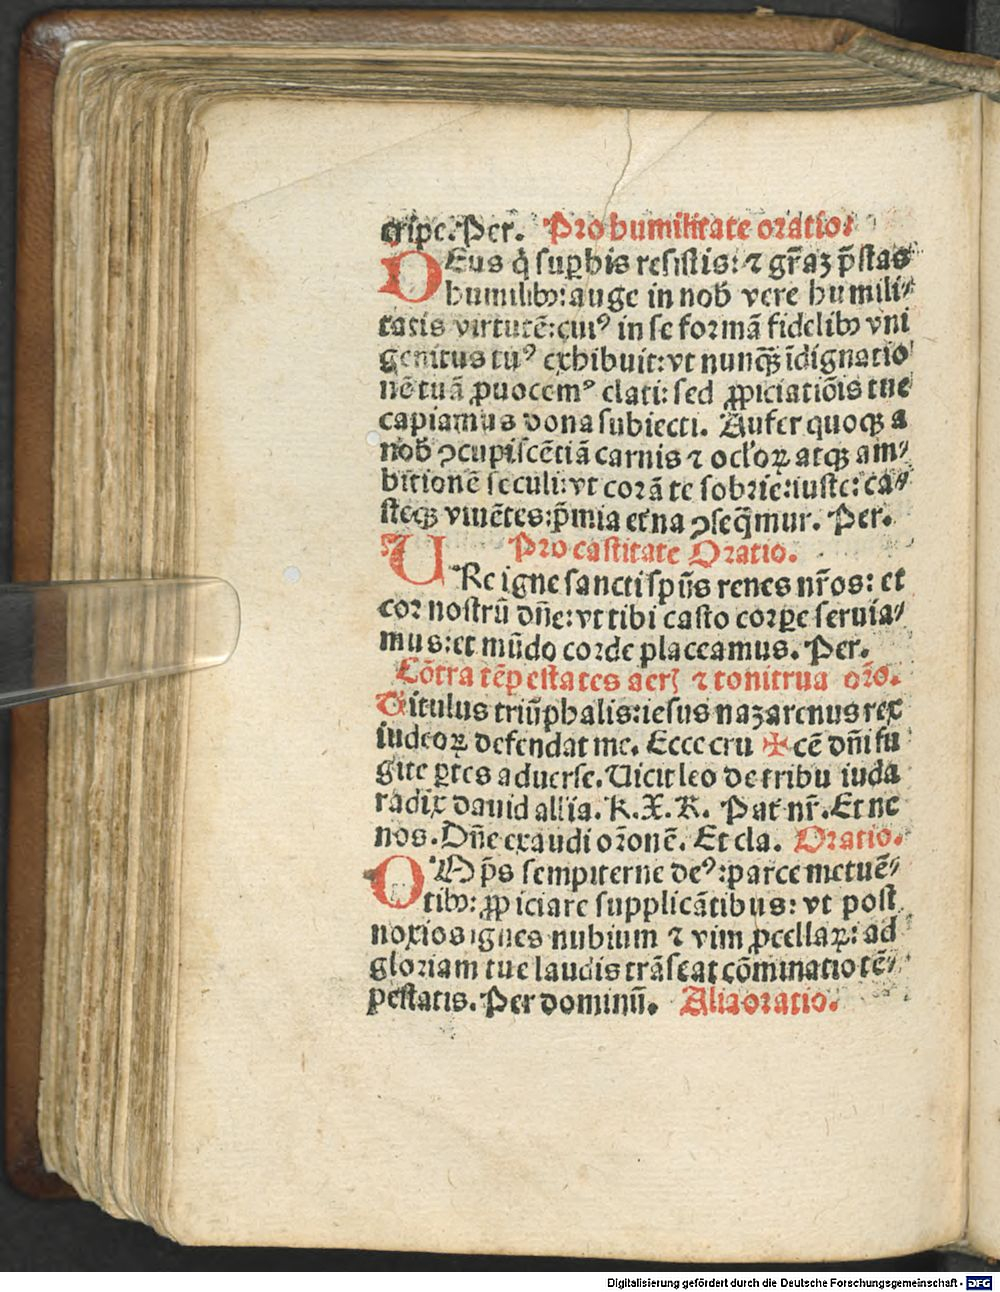 eripe. Per̄. Pro humilitate oratio.
DEus q̇ suꝑbis resistis: ⁊ gr̄aꝫ p̄stas
humilibꝰ: auge in nob̄ vere humili⸗
tatis virtutē: cuiꝰ in se formā fidelibꝰ vni
genitus tuꝰ exhibuit: vt nunqꝫ̄ īdignatio
nē tuā ꝓuocemꝰ elati: sed ꝓpiciatiōis tue
capiamus dona subiecti. Aufer quoqꝫ a
nob̄ ꝯcupiscētiā carnis ⁊ oclʼoꝝ atqꝫ am⸗
bitionē seculi: vt corā te sobrie: iuste: ca⸗
steqꝫ viuētes: p̄mia et̄na ꝯseq̄mur. Per.
Pro castitate Oratio.
URe igne sancti sp̄us renes nr̄os: et
cor nostrū dn̄e: vt tibi casto corꝑe seruia⸗
mus: et mūdo corde placeamus. Per.
Cōtra tēpestates aerꝭ ⁊ tonitrua or̄o.
Titulus triūphalis: iesus nazarenus rex
iudeoꝝ defendat me. Ecce cru ✠ cē dn̄i fu
gite ꝑtes aduerse. Uicit leo de tribu iuda
radix dauid all̄ia. K. X. K. Pat̄ nr̄. Et ne
nos. Dn̄e exaudi or̄onē. Et cla. Oratio.
OMp̄s sempiterne deꝰ: parce metuē⸗
tibꝰ: ꝓpiciare supplicātibus: vt post
noxios ignes nubium ⁊ vim ꝓcellaꝝ: ad
gloriam tue laudis trāseat cōminatio tē⸗
pestatis. Per dominū. Alia oratio.
Digitalisierung gefördert durch die Deutsche Forschungsgemeinschaft - DFG